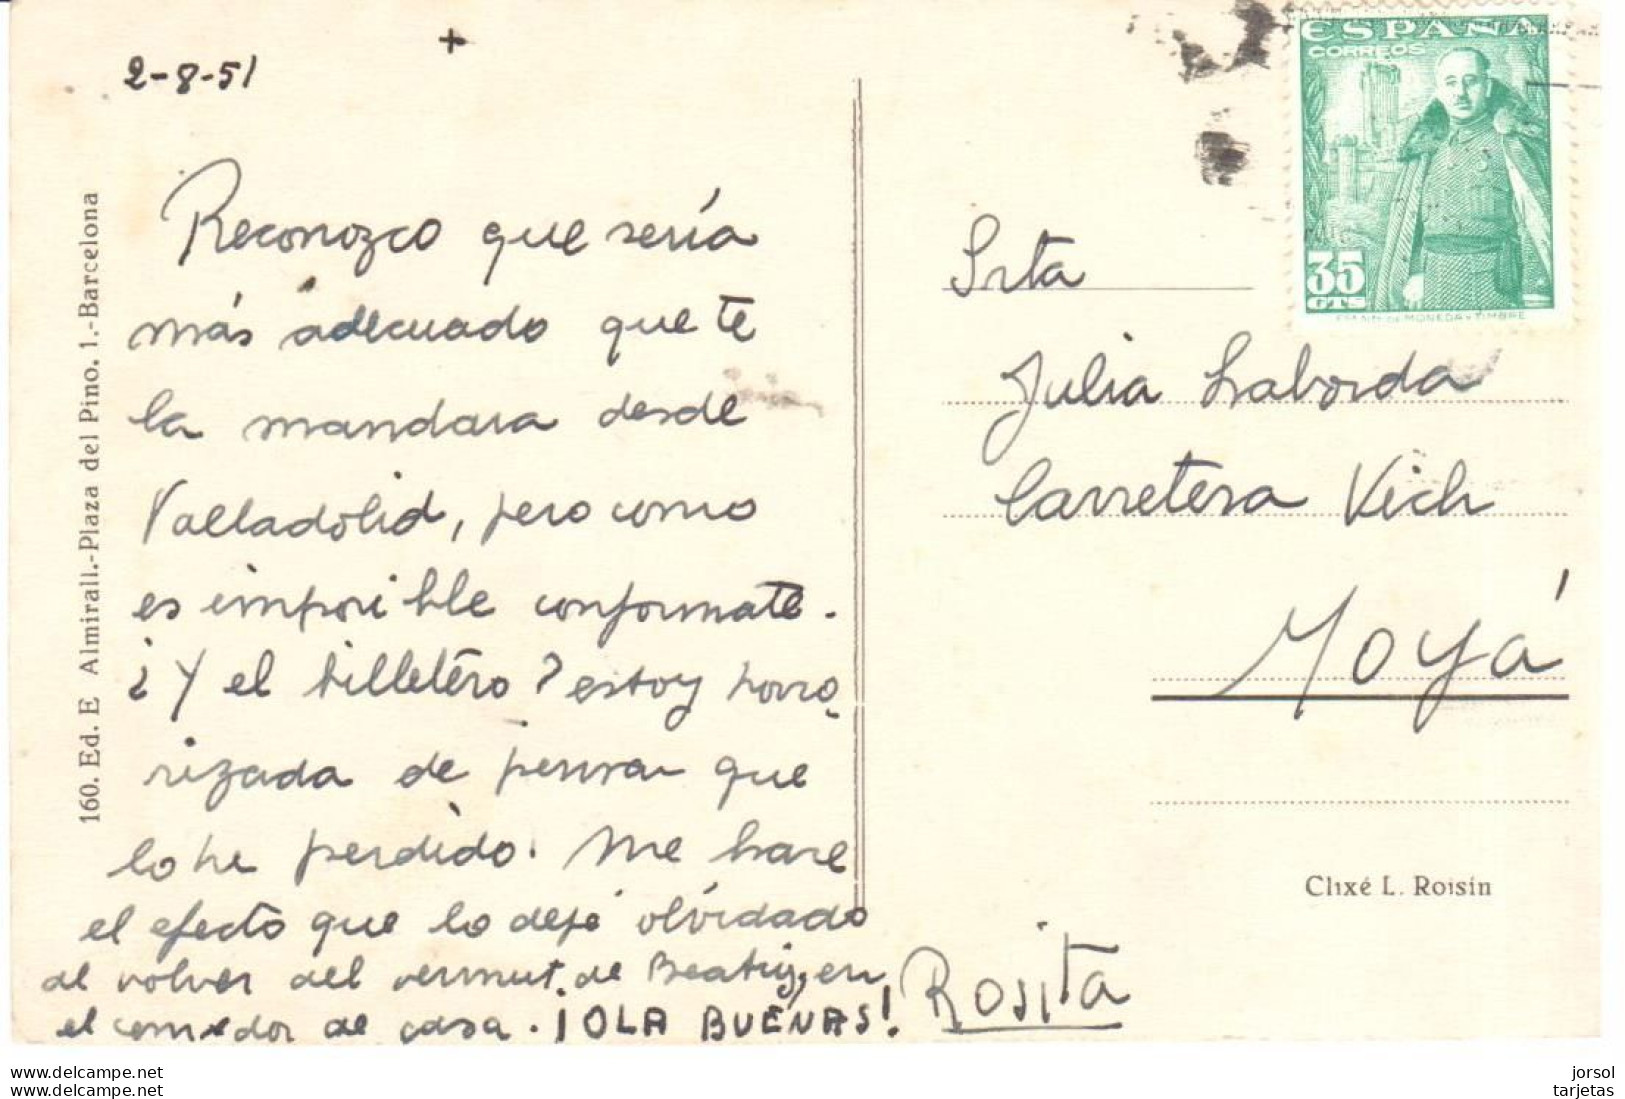 2-8-51
Reconozco que sería
más adecuado que te
la mandara desde
Valladolid, pero como
es imposible conformate.
¿Y el billetero? estoy horro-
rizada de pensar que
lo he perdido. Me hace
el efecto que lo dejé olvidado
al volver del vermut de Beatriz, en
el comedor de casa. ¡OLA BUENAS!
Rosita
160. Ed. E Almirall.-Plaza del Pino, 1.-Barcelona
ESPAÑA
CORREOS
35
CTS
MONEDA Y TIMBRE
Srta
Julia Laborda
Carretera Vich
Moyá
Clixé L. Roisín
www.delcampe.net
www.delcampe.net
jorsol
tarjetas